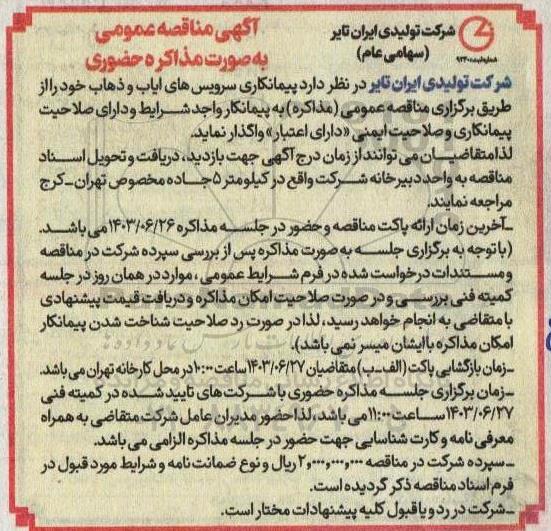 آگهی مناقصه عمومی
به صورت مذاکره حضوری
شرکت تولیدی ایران تایر
(سهامی عام)
شرکت تولیدی ایران تایر در نظر دارد پیمانکاری سرویس های ایاب و ذهاب خود را از
طریق برگزاری مناقصه عمومی (مذاکره) به پیمانکار واجد شرایط و دارای صلاحیت
پیمانکاری و صلاحیت ایمنی «دارای اعتبار» واگذار نماید.
لذا متقاضیان می توانند از زمان درج آگهی جهت بازدید، دریافت و تحویل اسناد
مناقصه به واحد دبیرخانه شرکت واقع در کیلومتر ۵ جاده مخصوص تهران ـ کرج
مراجعه نمایند.
ـ آخرین زمان ارائه پاکت مناقصه و حضور در جلسه مذاکره ۱۴۰۳/۰۶/۲۶ می باشد.
(با توجه به برگزاری جلسه به صورت مذاکره پس از بررسی سپرده شرکت در مناقصه
و مستندات درخواست شده در فرم شرایط عمومی، موارد در همان روز در جلسه
کمیته فنی بررسی و در صورت صلاحیت امکان مذاکره و دریافت قیمت پیشنهادی
با متقاضی به انجام خواهد رسید، لذا در صورت رد صلاحیت شناخت شدن پیمانکار
امکان مذاکره با ایشان میسر نمی باشد).
ـ زمان بازگشایی پاکت (الف ـ ب) متقاضیان ۱۴۰۳/۰۶/۲۷ ساعت ۱۰:۰۰ در محل کارخانه تهران می باشد.
ـ زمان برگزاری جلسه مذاکره حضوری با شرکت های تایید شده در کمیته فنی
۱۴۰۳/۰۶/۲۷ ساعت ۱۱:۰۰ می باشد، لذا حضور مدیران عامل شرکت متقاضی به همراه
معرفی نامه و کارت شناسایی جهت حضور در جلسه مذاکره الزامی می باشد.
ـ سپرده شرکت در مناقصه ۲,۰۰۰,۰۰۰,۰۰۰ ریال و نوع ضمانت نامه و شرایط مورد قبول در
فرم اسناد مناقصه ذکر گردیده است.
ـ شرکت در رد و یا قبول کلیه پیشنهادات مختار است.